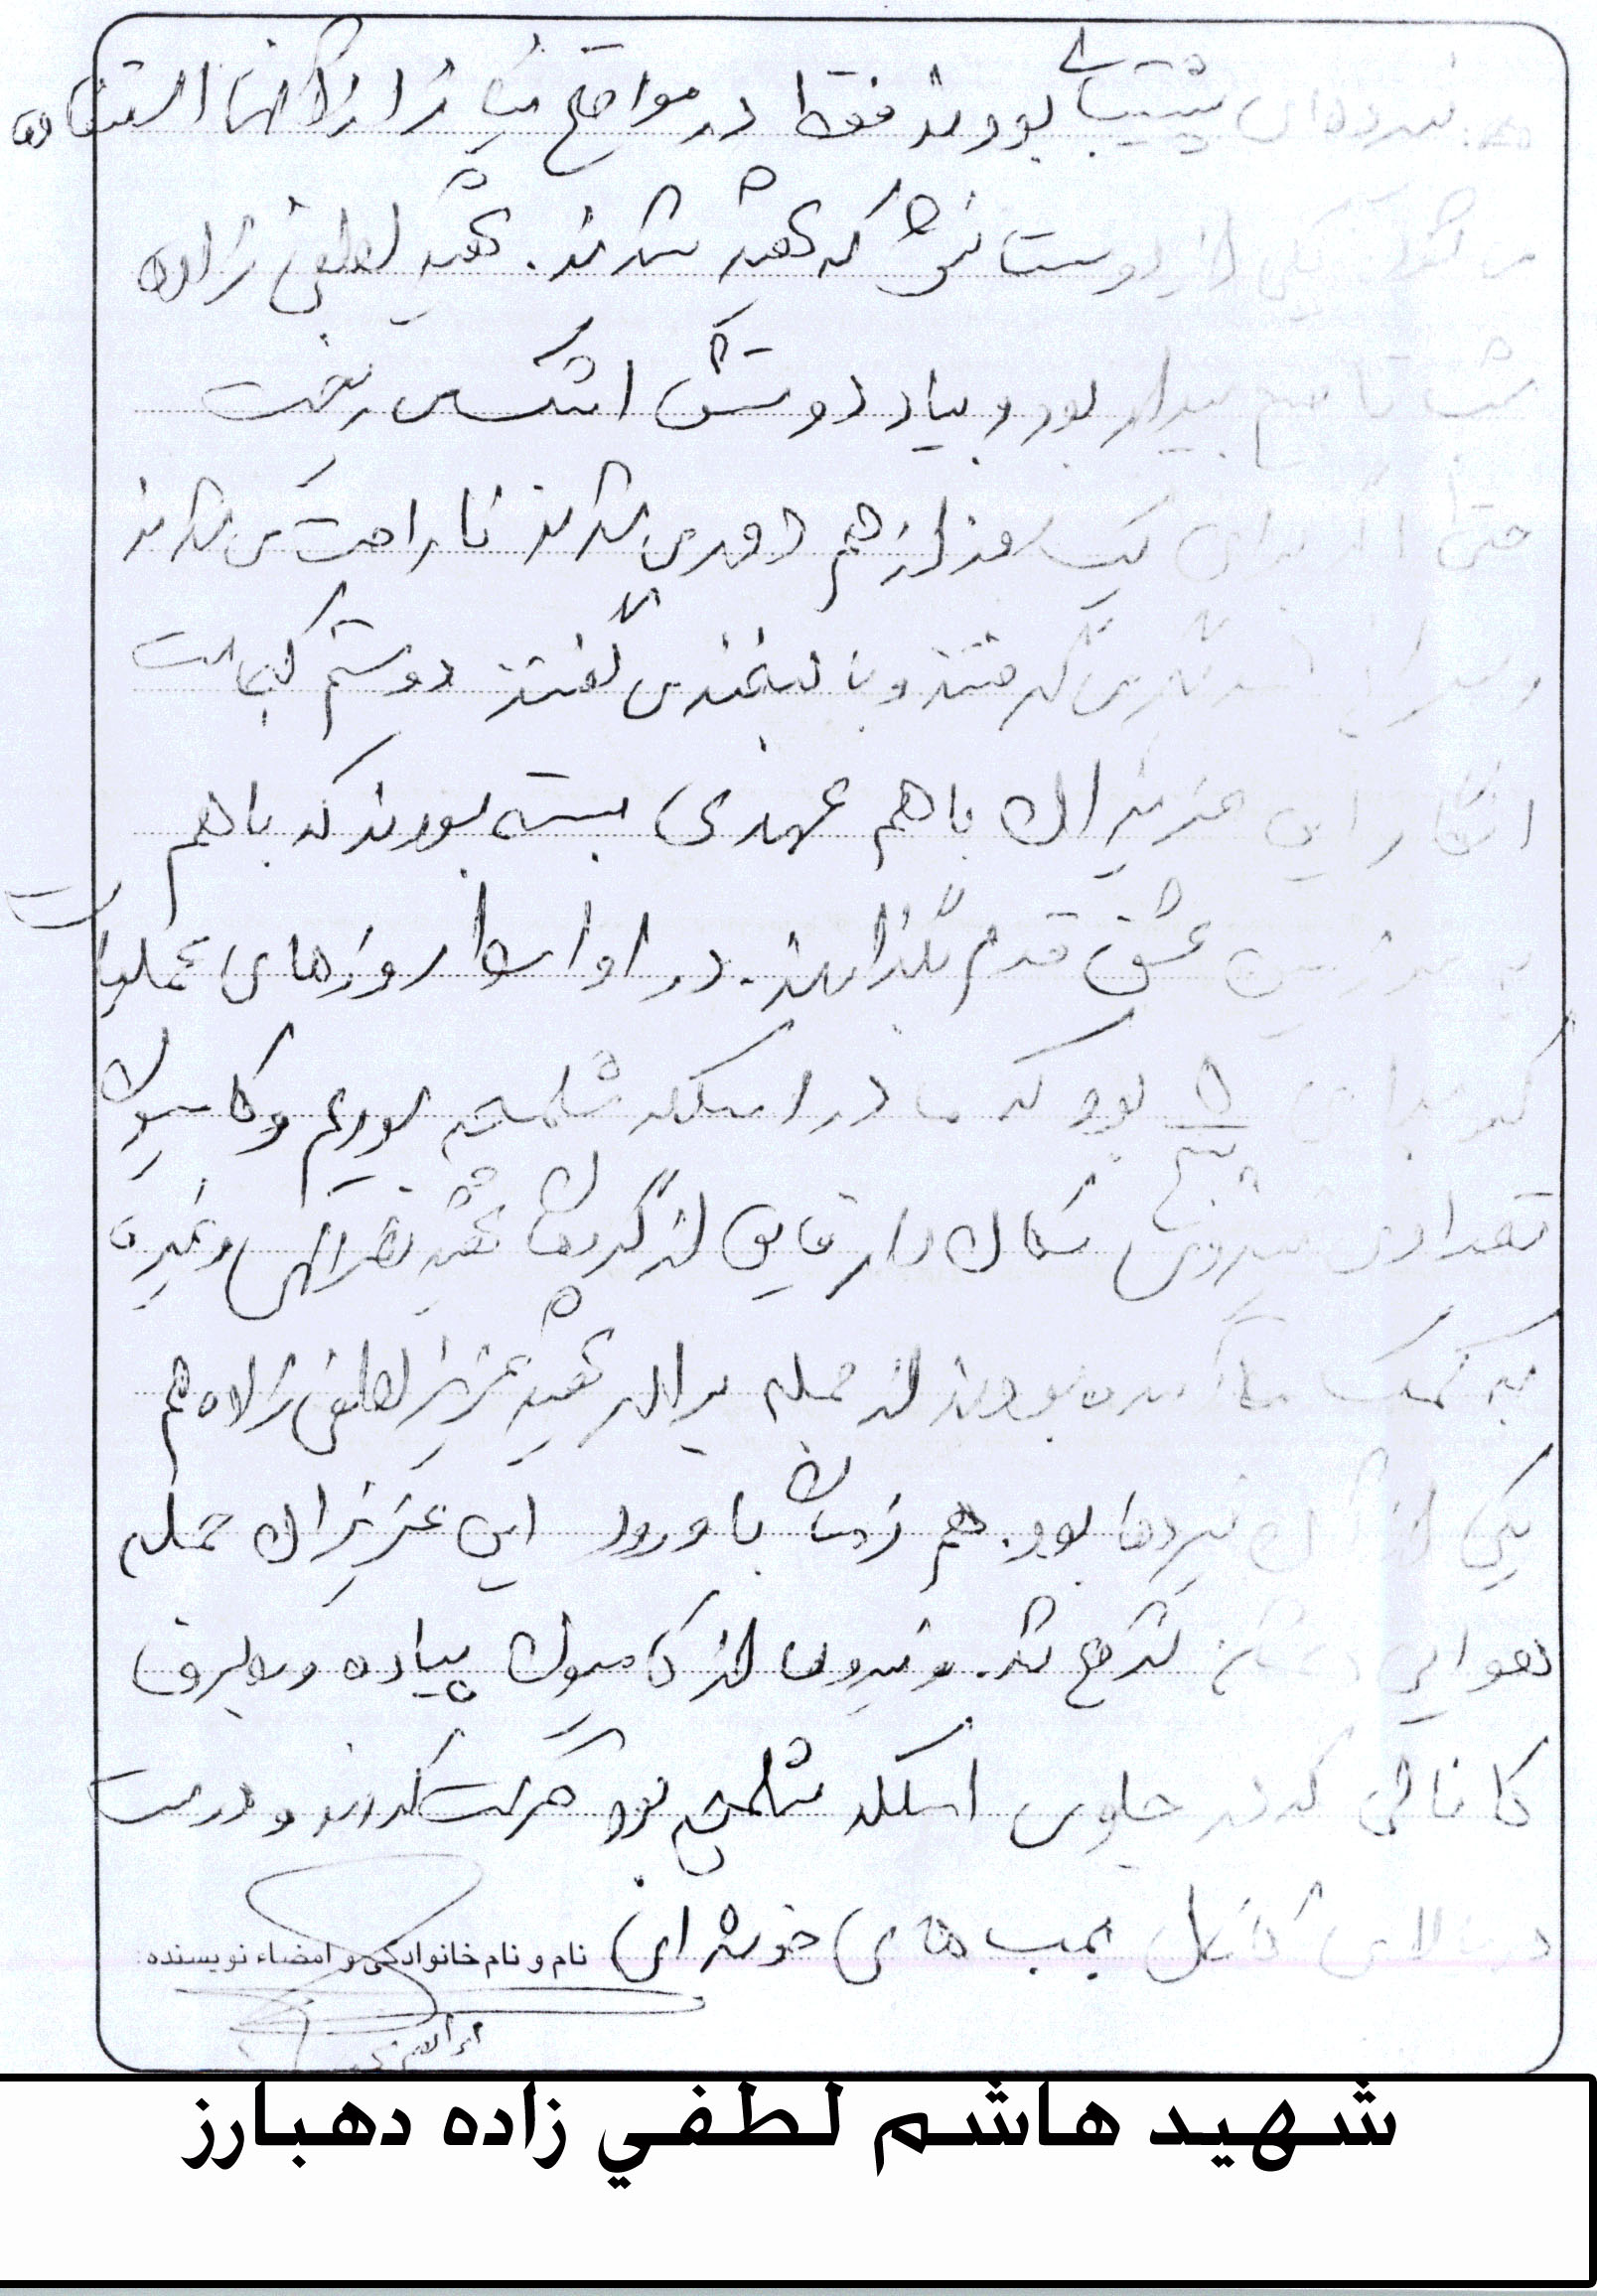 نیروهای پشتیبانی بودند فقط در مواقع نیاز از آنها استفاده
می شد. یکی از دوستانش که شهید شدند. شهید لطفی زاده
شب تا صبح بیدار بود و بیاد دوستش اشک می ریخت
حتی اگر برای یک روز از هم دور می شدند ناراحت می شدند
و می گرفتند و با لبخندی می گفتند دوستم کجاست
انگار این عزیزان با هم عهدی بسته بودند که با هم
به سرزمین عشق قدم بگذارند. در اواسط روزهای عملیات
کربلای ۵ پنج بود که ما در اسکله شلمچه بودیم و کامیون
تعدادی نیروی سکان دار قایق از گردان شهید نصرالهی و غیره
به کمک ما آمده بودند از جمله برادر شهید عزیز لطفی زاده هم
یکی از آن نیروها بود. هم زمان با ورود این عزیزان حمله
هوایی دشمن شروع شد. و نیروها از کامیون پیاده و به طرف
کانالی که در جلوی اسکله شلمچه بود حرکت کردند و درست
در بالای کانال بمب های خوشه ای
نام و نام خانوادگی و امضاء نویسنده:
شهید هاشم لطفي زاده دهبارز